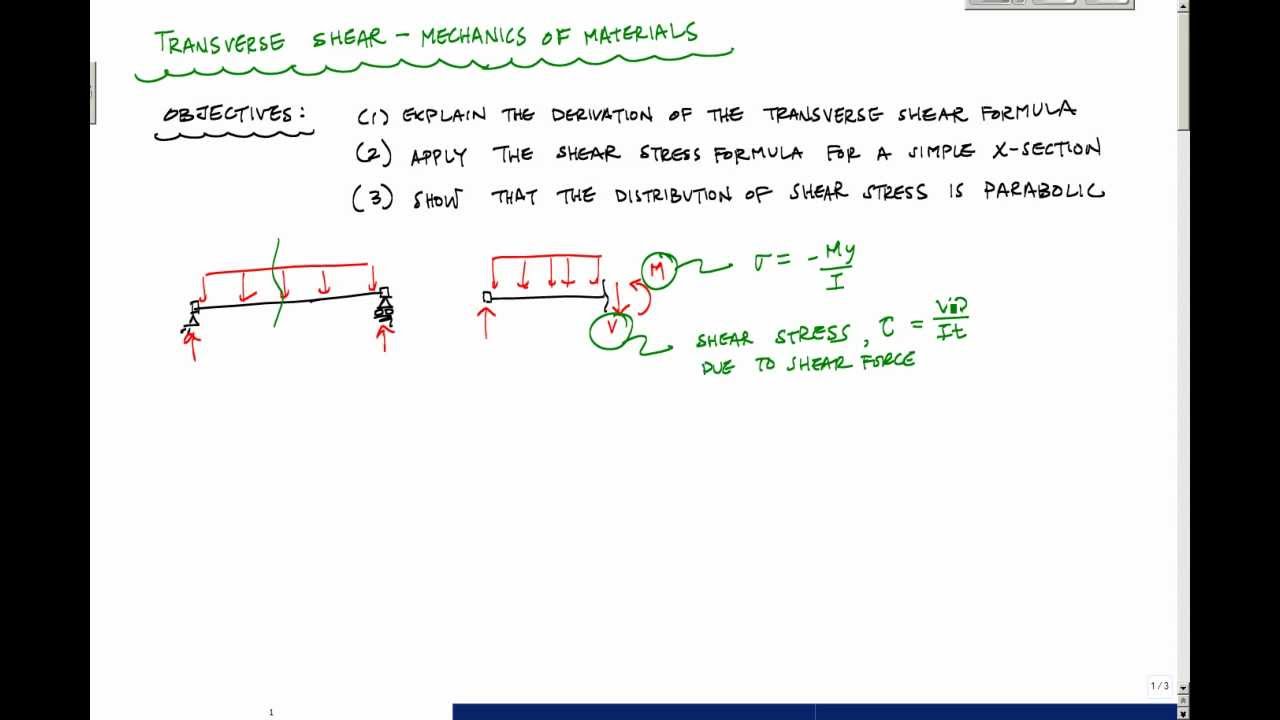 TRANSVERSE SHEAR – MECHANICS OF MATERIALS
OBJECTIVES: (1) EXPLAIN THE DERIVATION OF THE TRANSVERSE SHEAR FORMULA
(2) APPLY THE SHEAR STRESS FORMULA FOR A SIMPLE X-SECTION
(3) SHOW THAT THE DISTRIBUTION OF SHEAR STRESS IS PARABOLIC
M σ = - My / I
V SHEAR STRESS, τ = V / It
DUE TO SHEAR FORCE
1 / 3
1